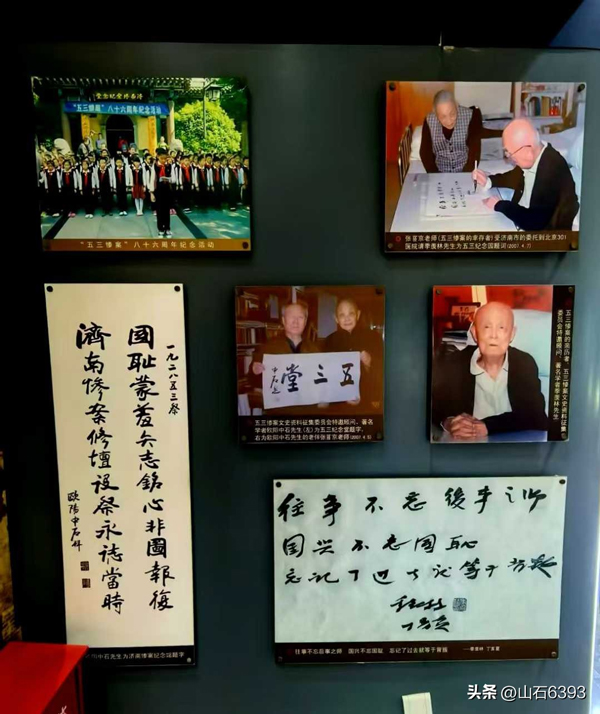 “五三惨案”八十六周年纪念活动
“五三惨案”八十六周年纪念活动
张首京老师(五三惨案的幸存者)受济南市的委托到北京301
医院请季羡林先生为五三纪念园题词(2007.4.7)
一九二八五三祭
國耻蒙羞矢志銘心非圖報復
濟南慘案修壇設祭永誌當時
歐陽中石拜
阳中石先生为济南惨案纪念园题字
五三堂
中石题
五三惨案文史资料征集委员会特邀顾问、著名
学者欧阳中石先生(左)为五三纪念堂题字,
右为欧阳中石的老伴张首京老师(2007.4.5)
五三惨案的亲历者、五三惨案文史资料征集
委员会特邀顾问、著名学者季羡林先生
往事不忘後事之师
国兴不忘国耻
忘记了过去就等于背叛
季羡林
往事不忘后事之师 国兴不忘国耻 忘记了过去就等于背叛 ——季羡林
头条 @山石6393